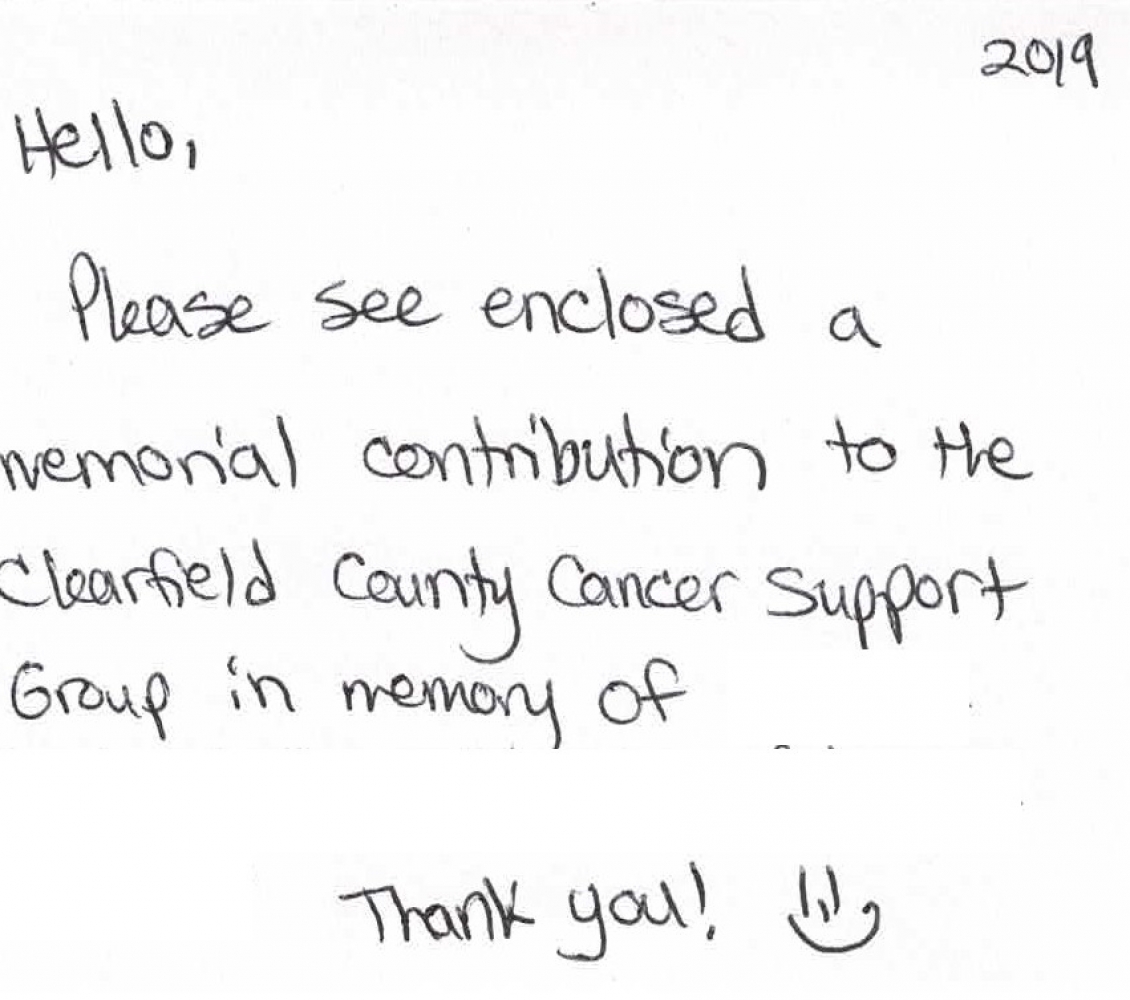 2019
Hello,
Please see enclosed a
memorial contribution to the
Clearfield County Cancer Support
Group in memory of
Thank you!